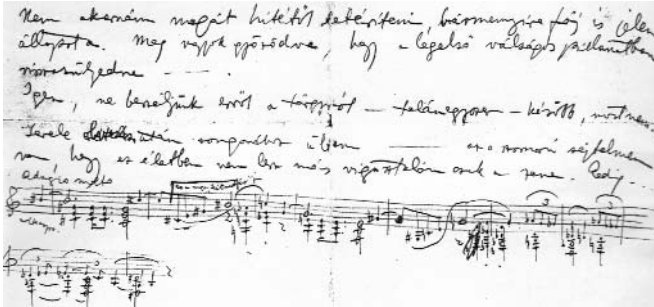 Nem akarnám magát hitétől eltéríteni, bármennyire fáj is jelen
állapota. Meg vagyok győződve, hogy a legelső válságos pillanatban
Igen, ne beszéljünk erről a tárgyról – talán egyszer – később, most nem.
levele után zongorához ültem —— az a szomorú sejtelmem
van, hogy ez életben nem lesz más vigasztalóm csak a zene. Pedig –
Adagio molto